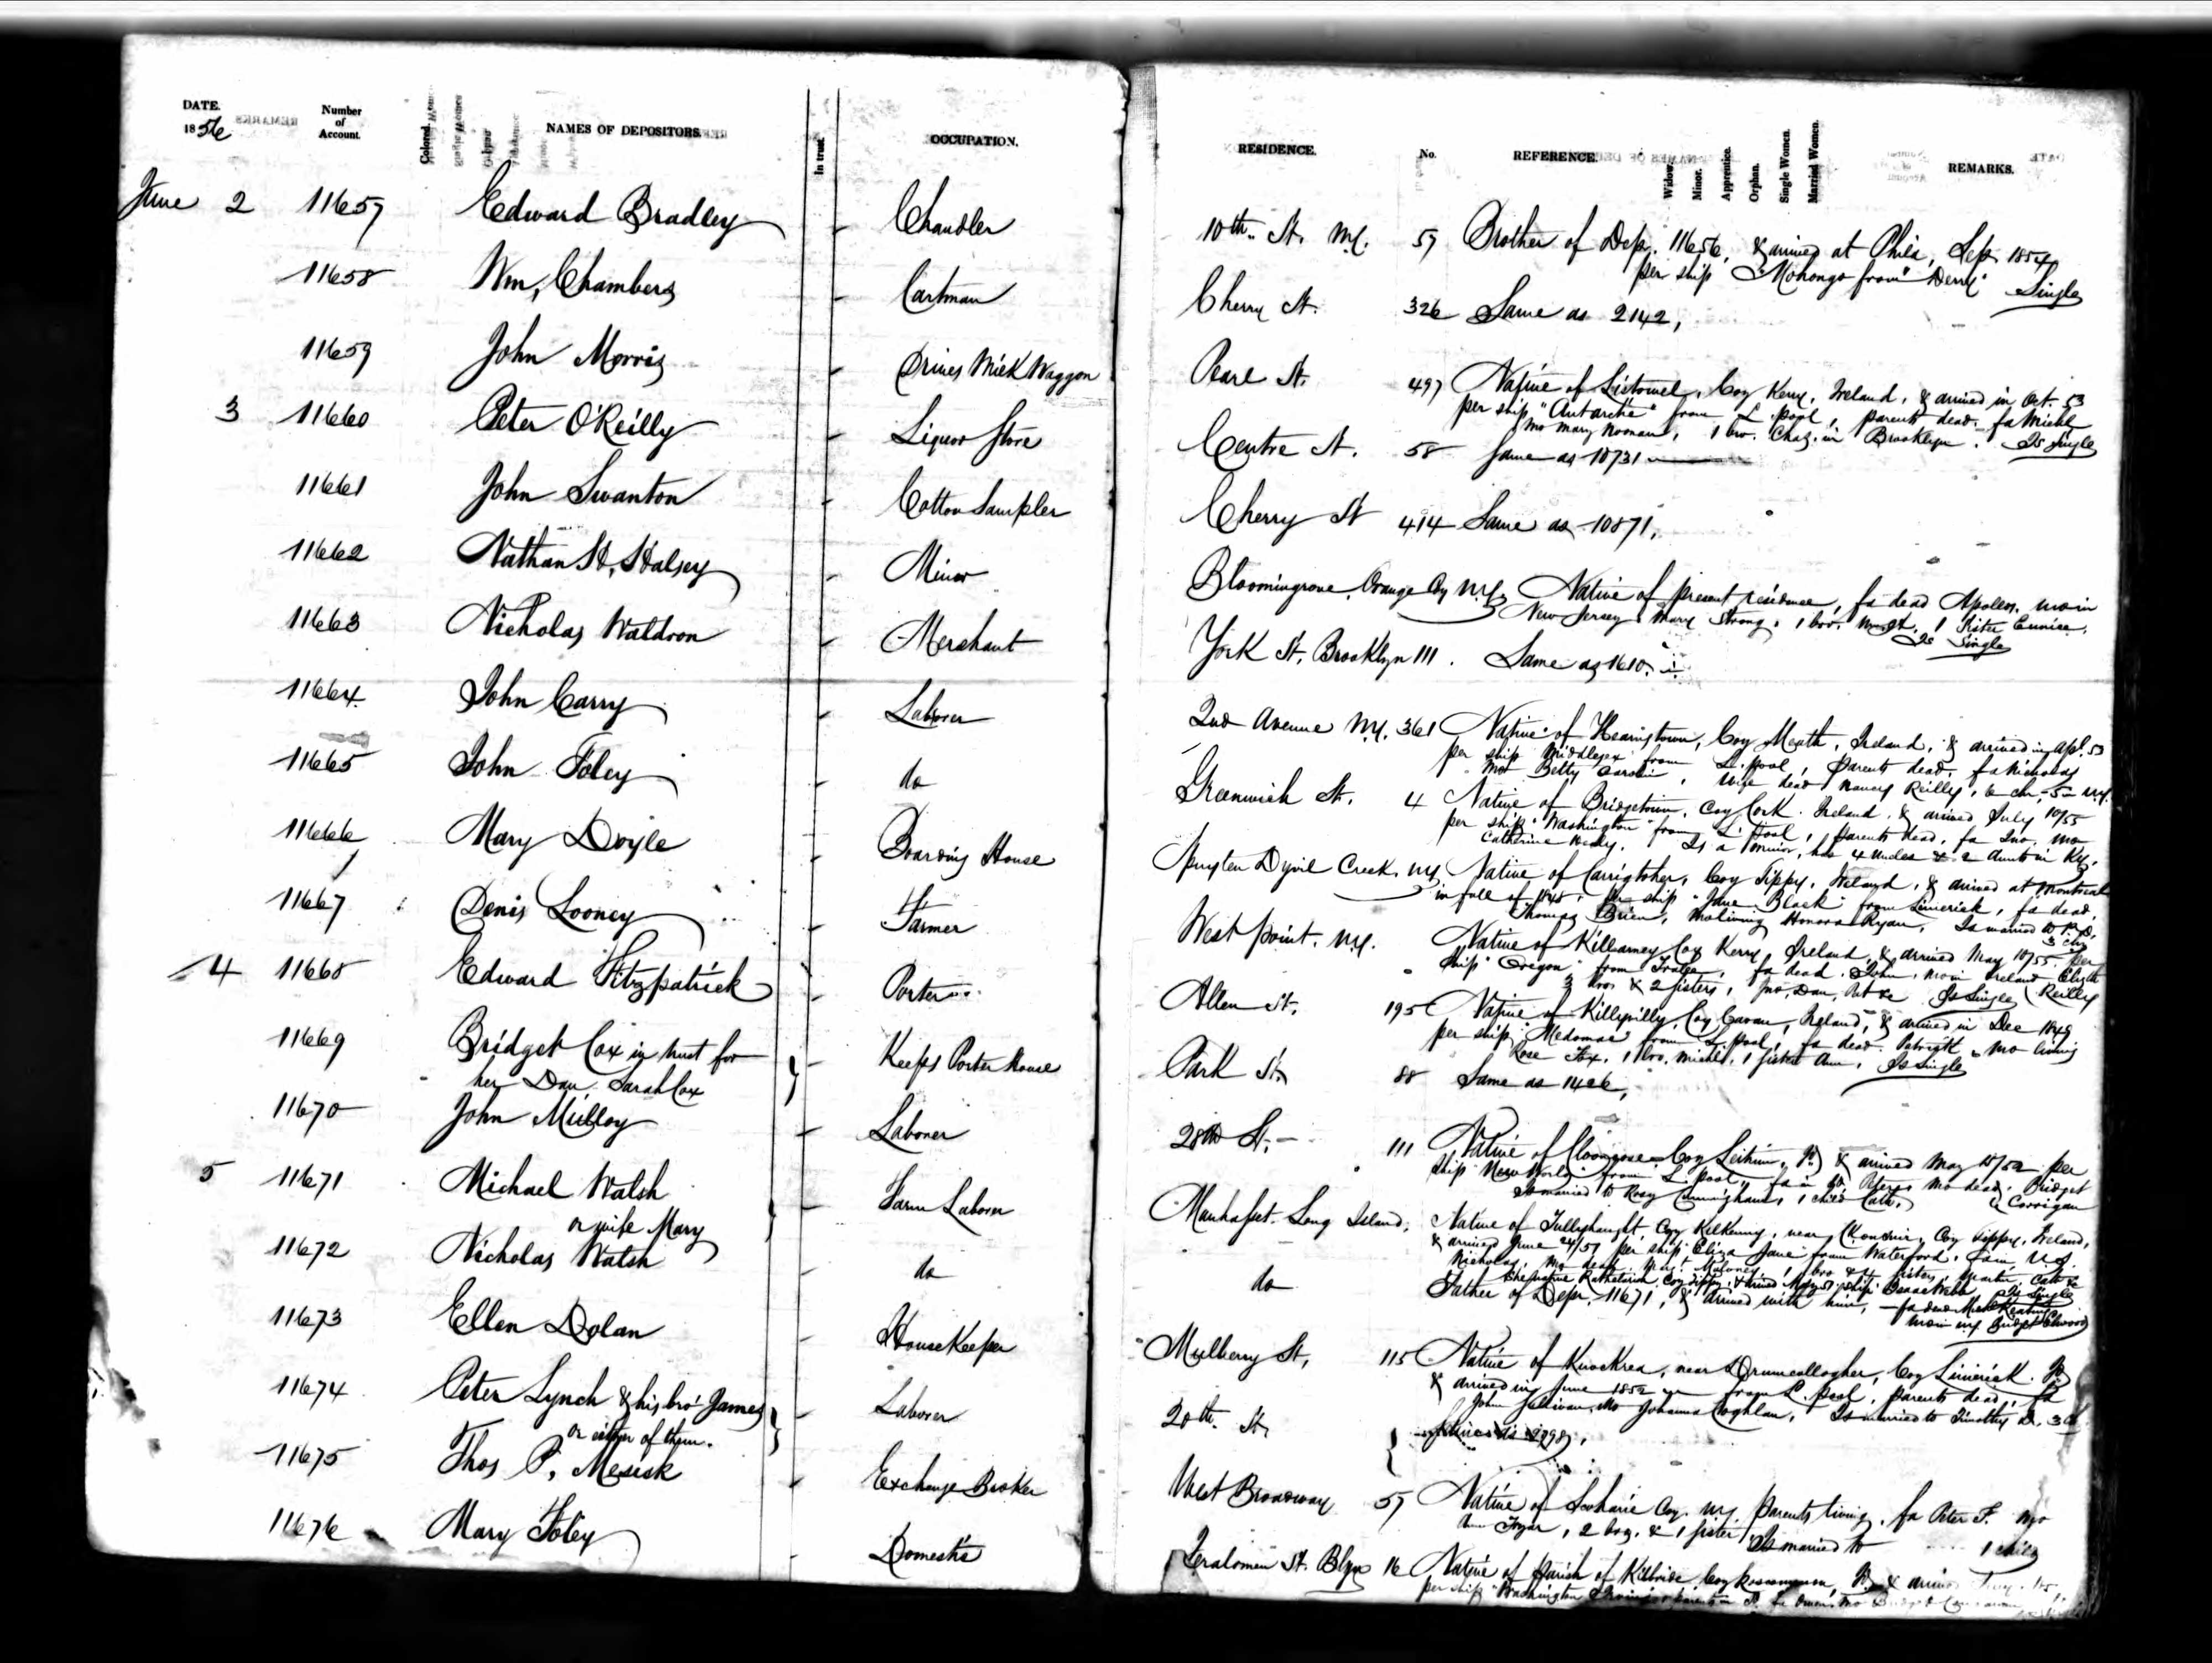 DATE. 1856 Number of Account. Colored. NAMES OF DEPOSITORS. In trust. OCCUPATION. RESIDENCE. No. REFERENCE. Widow. Minor. Apprentice. Orphan. Single Women. Married Women. REMARKS.
June 2 11657 Edward Bradley Chandler 10th.. St. N.Y. 57 Brother of Dep. 11656, & arrived at Phila, Sep. 1854
per ship "Mohongo from" Derry" Single
11658 Wm, Chambers Cartman Cherry St. 326 Same as 2142,
11659 John Morris Drives Milk Waggon Pearl St. 497 Native of Listowel, Coy Kerry, Ireland, & arrived in Oct. 53
per ship "Antarctic" from L. pool, parents dead. fa Michl
mo Mary Noonan, 1 bro. Chas. in Brooklyn. Is Single
3 11660 Peter O'Reilly Liquor Store Centre St. 58 Same as 10731
11661 John Swanton Cotton Sampler Cherry St 414 Same as 10871,
11662 Nathan H, Halsey Minor Bloomingrove, Orange Coy N.Y. Native of present residence, fa dead Apolos. mo in
New Jersey Mary Strong, 1 bro. 1 Sister Eunice.
Is Single
11663 Nicholas Waldron Merchant York St, Brooklyn 111. Same as 1610.
11664 John Carry Laborer 2nd Avenue N.Y. 361 Native of Hearistown, Coy Meath, Ireland, & arrived in Apl. 53
per ship Middlesex from L. pool, Parents dead, fa Nicholas
mo Betty, Wife dead Nancy Reilly, 6 ch, 5 in N.Y.
11665 John Foley do Greenwich St. 4 Native of Bridgetown, Coy Cork. Ireland, & arrived July 10/55
per ship "Washington" from L. Pool, parents dead, fa Jno. mo
Catherine Healy. Is a minor, has 4 Uncles & 2 Aunts in Ky.
11666 Mary Doyle Boarding House Spuyten Dyvil Creek, N.Y. Native of Carrigtoher, Coy Tippy, Ireland, & arrived at Montreal
in fall of 1848, per ship "Jane Black" from Limerick, fa dead,
Thomas Brien, mo living Honora Ryan, Is married to
3 ch
11667 Denis Looney Farmer West point. N.Y. Native of Killarney Coy Kerry, Ireland, & arrived May 10/55, per
Ship "Oregon" from Tralee, fa dead. John, mo in Ireland Elizth Reilly
3 bros & 2 sisters, Jno, Dan, Pat &c Is Single
4 11668 Edward Fitzpatrick Porter Allen St. 195 Native of Killypilly, Coy Cavan, Ireland, & arrived in Dec 1849
per ship "Medomac" from L. pool, fa dead. Patrick, mo living
Rose Fox, 1 bro. Michl. 1 sister Ann, Is Single
11669 Bridget Cox in trust for Keeps Porter House Park St. 88 Same as 1406,
her Dau. Sarah Cox
11670 John Mulloy Laborer 28th St. 111 Native of Cloongose Coy Leitrim, & arrived May 15/52 per
Ship "New World" from L. pool, fa in Peter, mo dead, Bridget Corrigan
Is married to Rosy Cunningham, 1 child Cath.
5 11671 Michael Walsh Farm Laborer Manhasset. Long Island. Native of Tullyhaught, Coy Kilkenny, near, Coy Tippy, Ireland,
or wife Mary & arrived June 24/51 per ship "Eliza Jane" from Waterford. fa in U.S.
Nicholas, mo dead Margt Maloney, 1 bro & 4 sisters, Martin, Cath &c
Is Single
11672 Nicholas Walsh do do Father of Depr. 11671, & arrived with him,
11673 Ellen Dolan HouseKeeper Mulberry St, 115 Native of Knockrea, near Drumcollogher, Coy Limerick.
& arrived in June 1852 from L. pool, parents dead, fa
John Sullivan, Mo Johanna Coghlan, Is married to Timothy D. 3 ch
11674 Peter Lynch & his bro' James Laborer 20th. St.
or either of them.
11675 Thos P. Mesick Exchange Broker West Broadway 57 Native of Schoharie Coy. N.Y. Parents living, fa Peter F. Mo
2 bros. & 1 sister Is married to 1 child
11676 Mary Foley Domestic Joralomen St. Blyn 16 Native of Parish of Kilbride, Coy Roscommon,
per ship "Washington